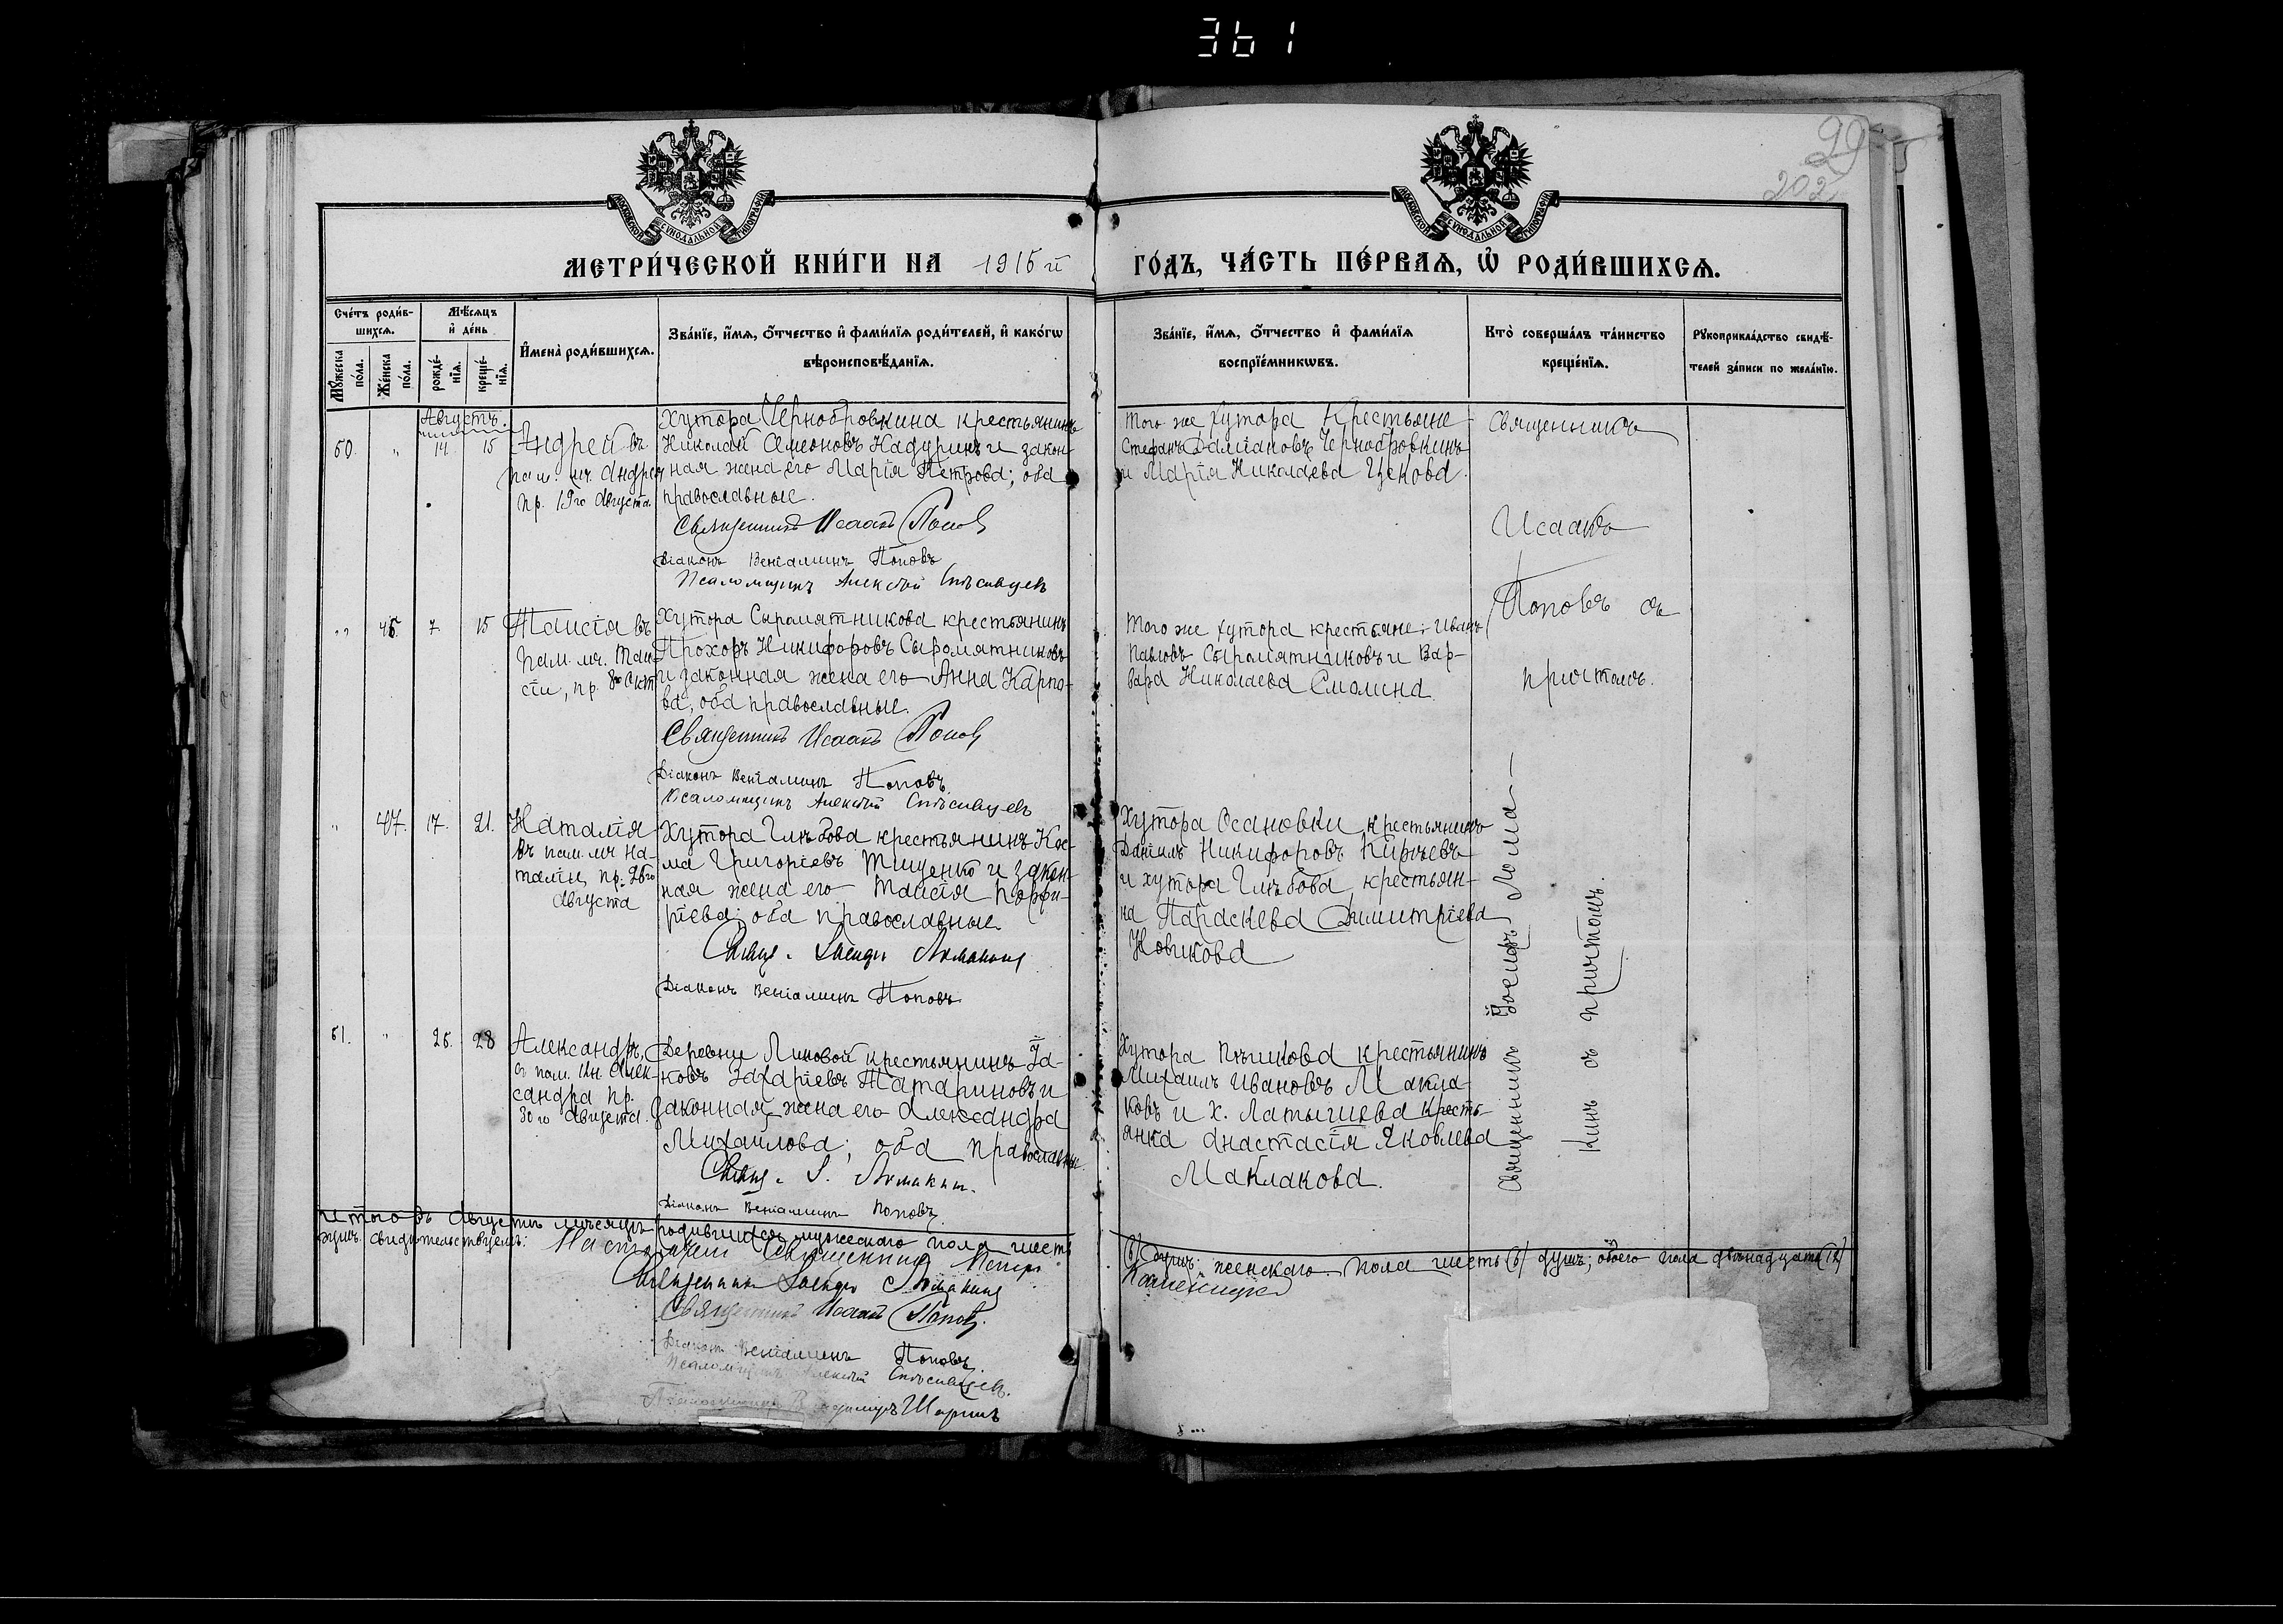 361
29
202
МОСКОВСКОЙ СУНОДАЛЬНОЙ ТИПОГРАФІИ
МОСКОВСКОЙ СУНОДАЛЬНОЙ ТИПОГРАФІИ
МЕТРИ́ЧЕСКОЙ КНИ́ГИ НА 1915 й ГО́ДЪ, ЧА́СТЬ ПЕ́РВАѦ, Ѡ҆ РОДИ́ВШИХСѦ.
Сче́тъ роди́в-
шихсѧ.
Мꙋ́жеска
по́ла.
Же́нска
по́ла.
Мѣ́сѧцъ
и҆ де́нь
рожде́-
нїѧ.
креще́-
нїѧ.
И҆мена̀ роди́вшихсѧ.
Зва́нїе, и҆́мѧ, ѻ҆́тчество и҆ фами́лїѧ роди́телей, и҆ како́гѡ
вѣроисповѣ́данїѧ.
Зва́нїе, и҆́мѧ, ѻ҆́тчество и҆ фами́лїѧ
воспрїе́мникѡвъ.
Кто̀ соверша́лъ та́инство
креще́нїѧ.
Рꙋкоприкла́дство свидѣ́-
телей за́писи по жела́нїю.
Августъ.
50. " 14. 15
Андрей въ
пам. мч. Андрея
пр. 19го Августа.
Хутора Чернобровкина крестьянинъ
Николай Симеоновъ Кадуринъ и закон-
ная жена его Марія Петрова; оба
православные.
Священникъ Исаакъ Поповъ
Діаконъ Веніаминъ Поповъ
Псаломщикъ Алексѣй Спѣсивцевъ
Того же хутора Крестьяне
Стефанъ Даміановъ Чернобровкинъ
и Марія Николаева Цекова.
Священникъ
Исаакъ
Поповъ съ
причтомъ.
" 46. 7. 15
Таисія въ
пам. мч. Таи-
сіи, пр. 8го Окт
Хутора Сыромятникова крестьянинъ
Прохоръ Никифоровъ Сыромятниковъ
и законная жена его Анна Карпо-
ва, оба православные.
Священникъ Исаакъ Поповъ
Діаконъ Веніаминъ Поповъ.
Псаломщикъ Алексѣй Спѣсивцевъ
Того же хутора крестьяне: Иванъ
Павловъ Сыромятниковъ и Вар-
вара Николаева Смолина.
" 47. 17. 21.
Наталія
въ пам. мч На-
таліи, пр. 26го
Августа
Хутора Глѣбова крестьянинъ Кос-
ма Григоріевъ Тищенко и закон-
ная жена его Таисія Порфи-
ріева; оба православные.
Свящ. Іосифъ Ломакинъ
Діаконъ Веніаминъ Поповъ
Хутора Осановки, крестьянинъ
Даніилъ Никифоровъ Кирѣевъ
и хутора Глѣбова, крестьян-
ка Параскева Димитріева
Новикова
Священникъ Іосифъ Лома-
кинъ съ причтомъ.
51. " 25. 28
Александръ,
въ пам. кн. Алек-
сандра пр.
30го Августа.
Деревни Липовой крестьянинъ Іа-
ковъ Захаріевъ Татариновъ и
законная жена его Александра
Михаилова; оба православные.
Свящ. І. Ломакинъ.
Діаконъ Веніаминъ Поповъ.
Хутора Пѣшкова крестьянинъ
Михаилъ Ивановъ Макла-
ковъ и х. Латышева кресть-
янка Анастасія Яковлева
Маклакова.
Итого въ Августѣ мѣсяцѣ родившихся мужескаго пола шесть
(6) душъ; женскаго пола шесть (6) душъ; обоего пола двѣнадцать (12)
душъ. свидѣтельствуемъ: Настоятель Священникъ Петръ
Каменскій
Священникъ Іосифъ Ломакинъ
Священникъ Исаакъ Поповъ.
Діаконъ Веніаминъ Поповъ.
Псаломщикъ Алексѣй Спѣсивцевъ.